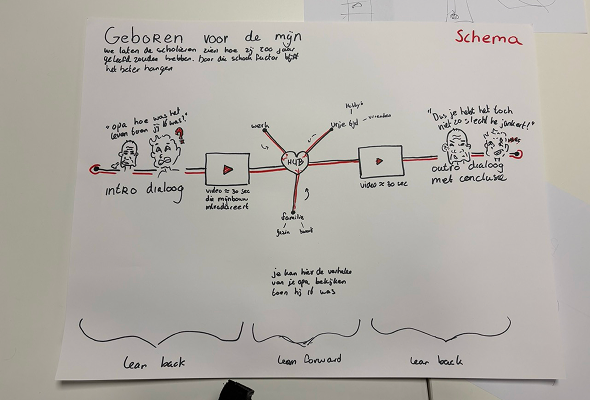 Geboren voor de mijn
Schema
we laten de scholieren zien hoe zij 200 jaar
geleefd zouden hebben. Door die schok factor blijft
het beter hangen
"opa hoe was het
leven toen jij 16 was?"
werk
Hobby's
vrije tijd
vrienden
"Dus je hebt het toch
niet zo slecht he jonkert!"
HUB
intro dialoog
video ≈ 30 sec
die mijnbouw
introduceert
video ≈ 30 sec
outro dialoog
met conclusie
familie
gezin
buurt
je kan hier de verhalen
van je opa bekijken
toen hij 16 was
lean back
lean forward
lean back